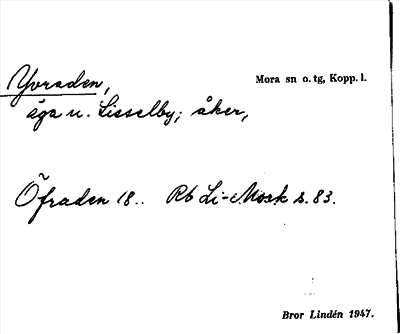 Yvraden,
Mora sn o. tg, Kopp. l.
äga u. Lisselby; åker,
Öfraden 18.. Rb Li-Mock s. 83.
Bror Lindén 1947.